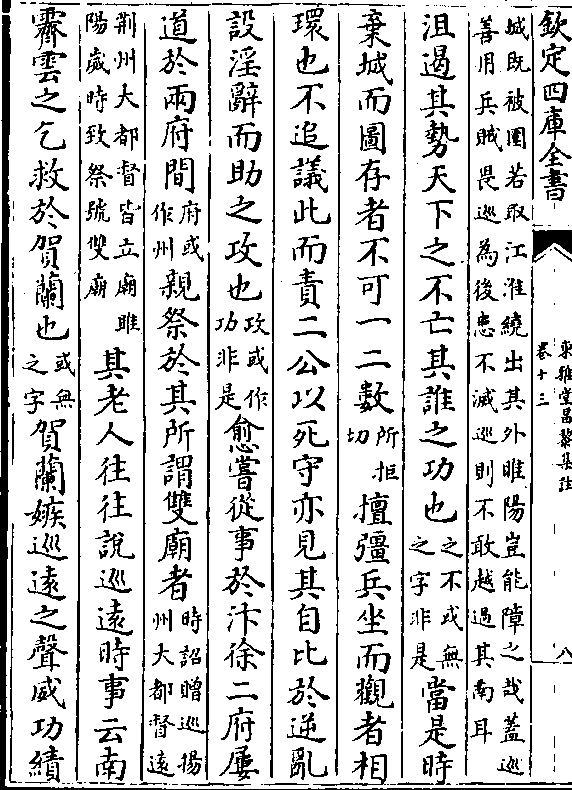 欽定四庫全書
東雅堂昌黎集註
卷十三
八
城既被圍若取江淮繞出其外睢陽豈能障之哉蓋巡
善用兵賊畏巡為後患不滅巡則不敢越過其南耳
沮遏其勢天下之不亡其誰之功也之不或無之字非是當是時
棄城而圖存者不可一二數所拒切擅彊兵坐而觀者相
環也不追議此而責二公以死守亦見其自比於逆亂
設淫辭而助之攻也攻或作功非是愈嘗從事於汴徐二府屢
道於兩府間府或作州親祭於其所謂雙廟者時詔贈巡揚州大都督遠
荆州大都督皆立廟睢陽歲時致祭號雙廟其老人往往說巡遠時事云南
霽雲之乞救於賀蘭也或無之字賀蘭嫉巡遠之聲威功績